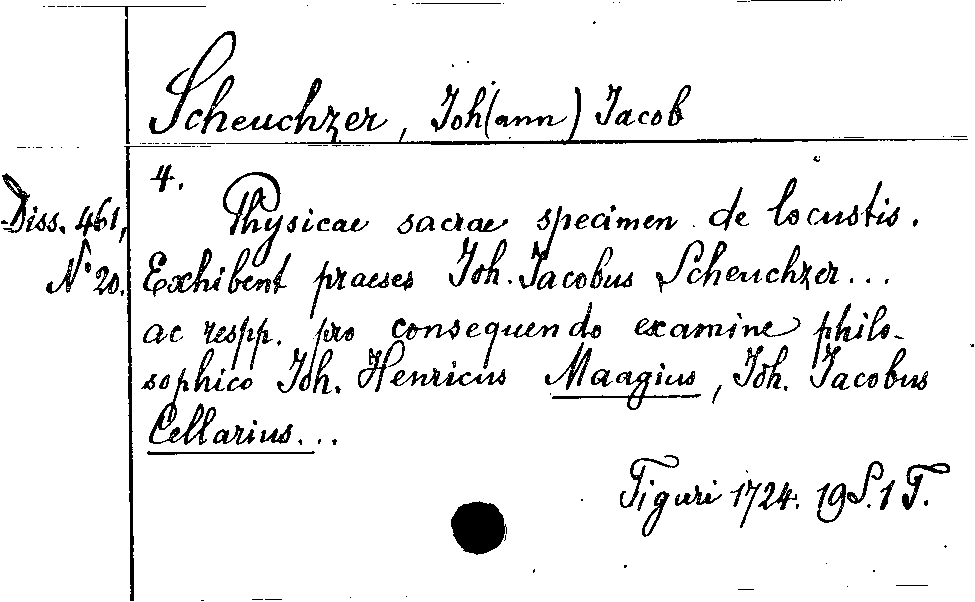 Scheuchzer, Joh(ann) Jacob
4.
Diss. 461,
N° 20.
Physicae sacrae specimen de locustis.
Exhibent praeses Joh. Jacobus Scheuchzer...
ac respp. pro consequendo examine philo-
sophico Joh. Henricus Maagius, Joh. Jacobus
Cellarius...
Tiguri 1724. 19 S. 1 T.